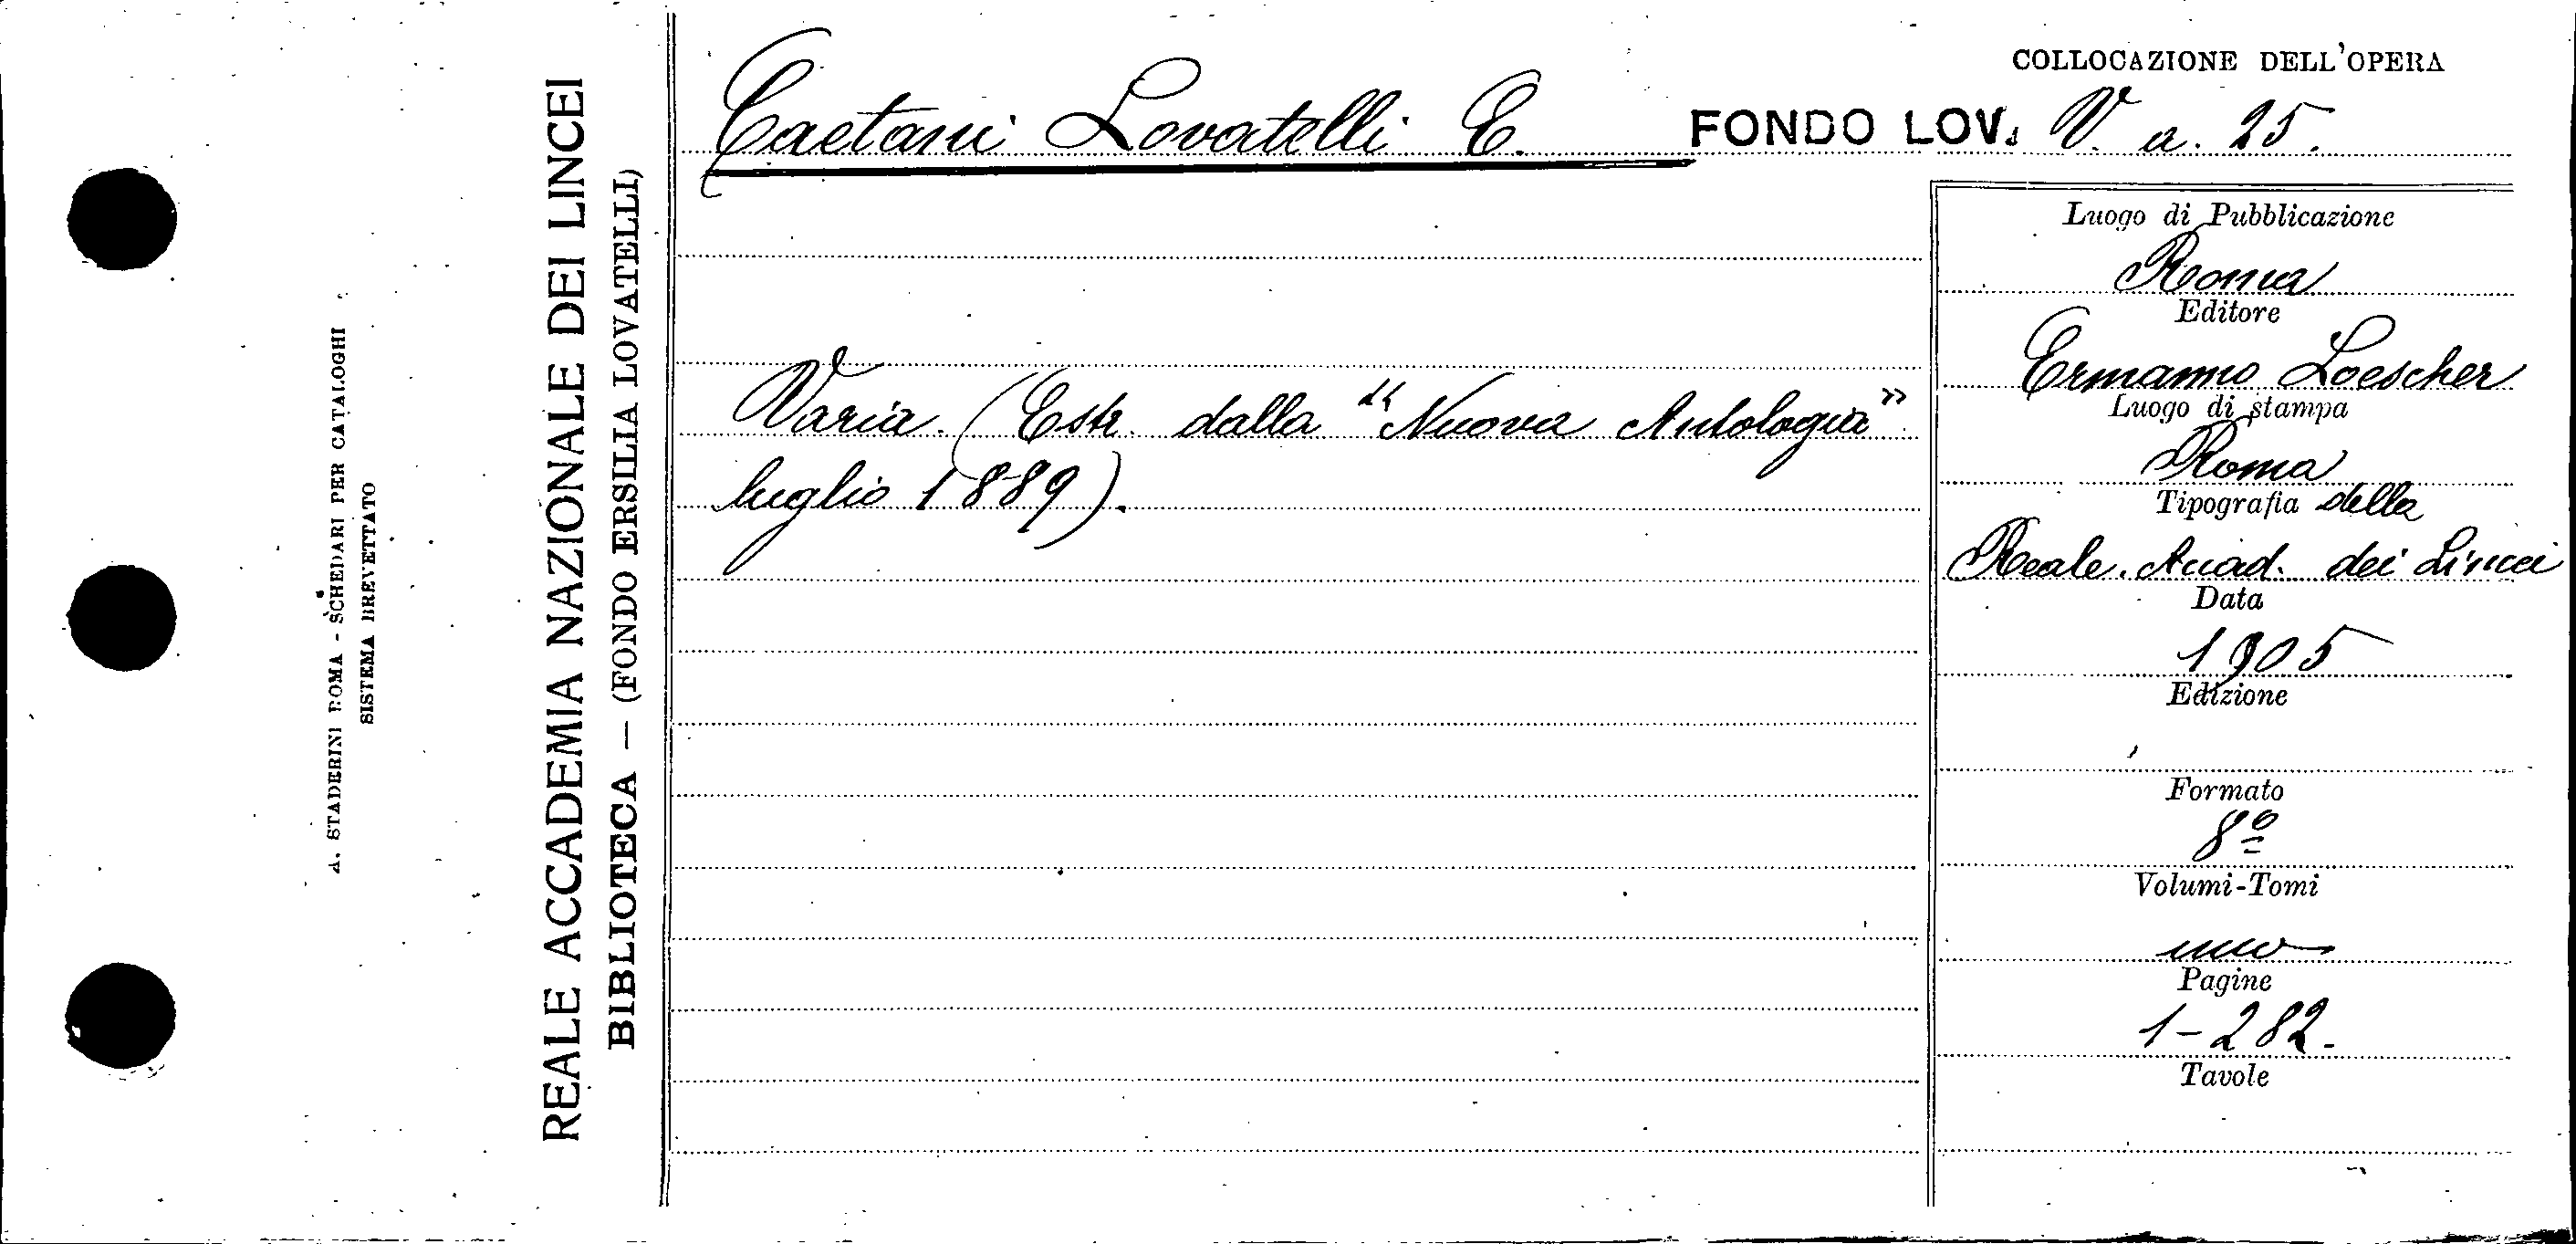 A. STADERINI ROMA - SCHEDARI PER CATALOGHI
SISTEMA BREVETTATO
REALE ACCADEMIA NAZIONALE DEI LINCEI
BIBLIOTECA — (FONDO ERSILIA LOVATELLI)
COLLOCAZIONE DELL'OPERA
Caetani Lovatelli E. FONDO LOV. V. a. 25.
Varia. (Estr. dalla "Nuova Antologia"
luglio 1889).
Luogo di Pubblicazione
Roma
Editore
Ermanno Loescher
Luogo di stampa
Roma
Tipografia della
Reale. Accad. dei Lincei
Data
1905
Edizione
Formato
8º
Volumi-Tomi
uno
Pagine
1-282.
Tavole